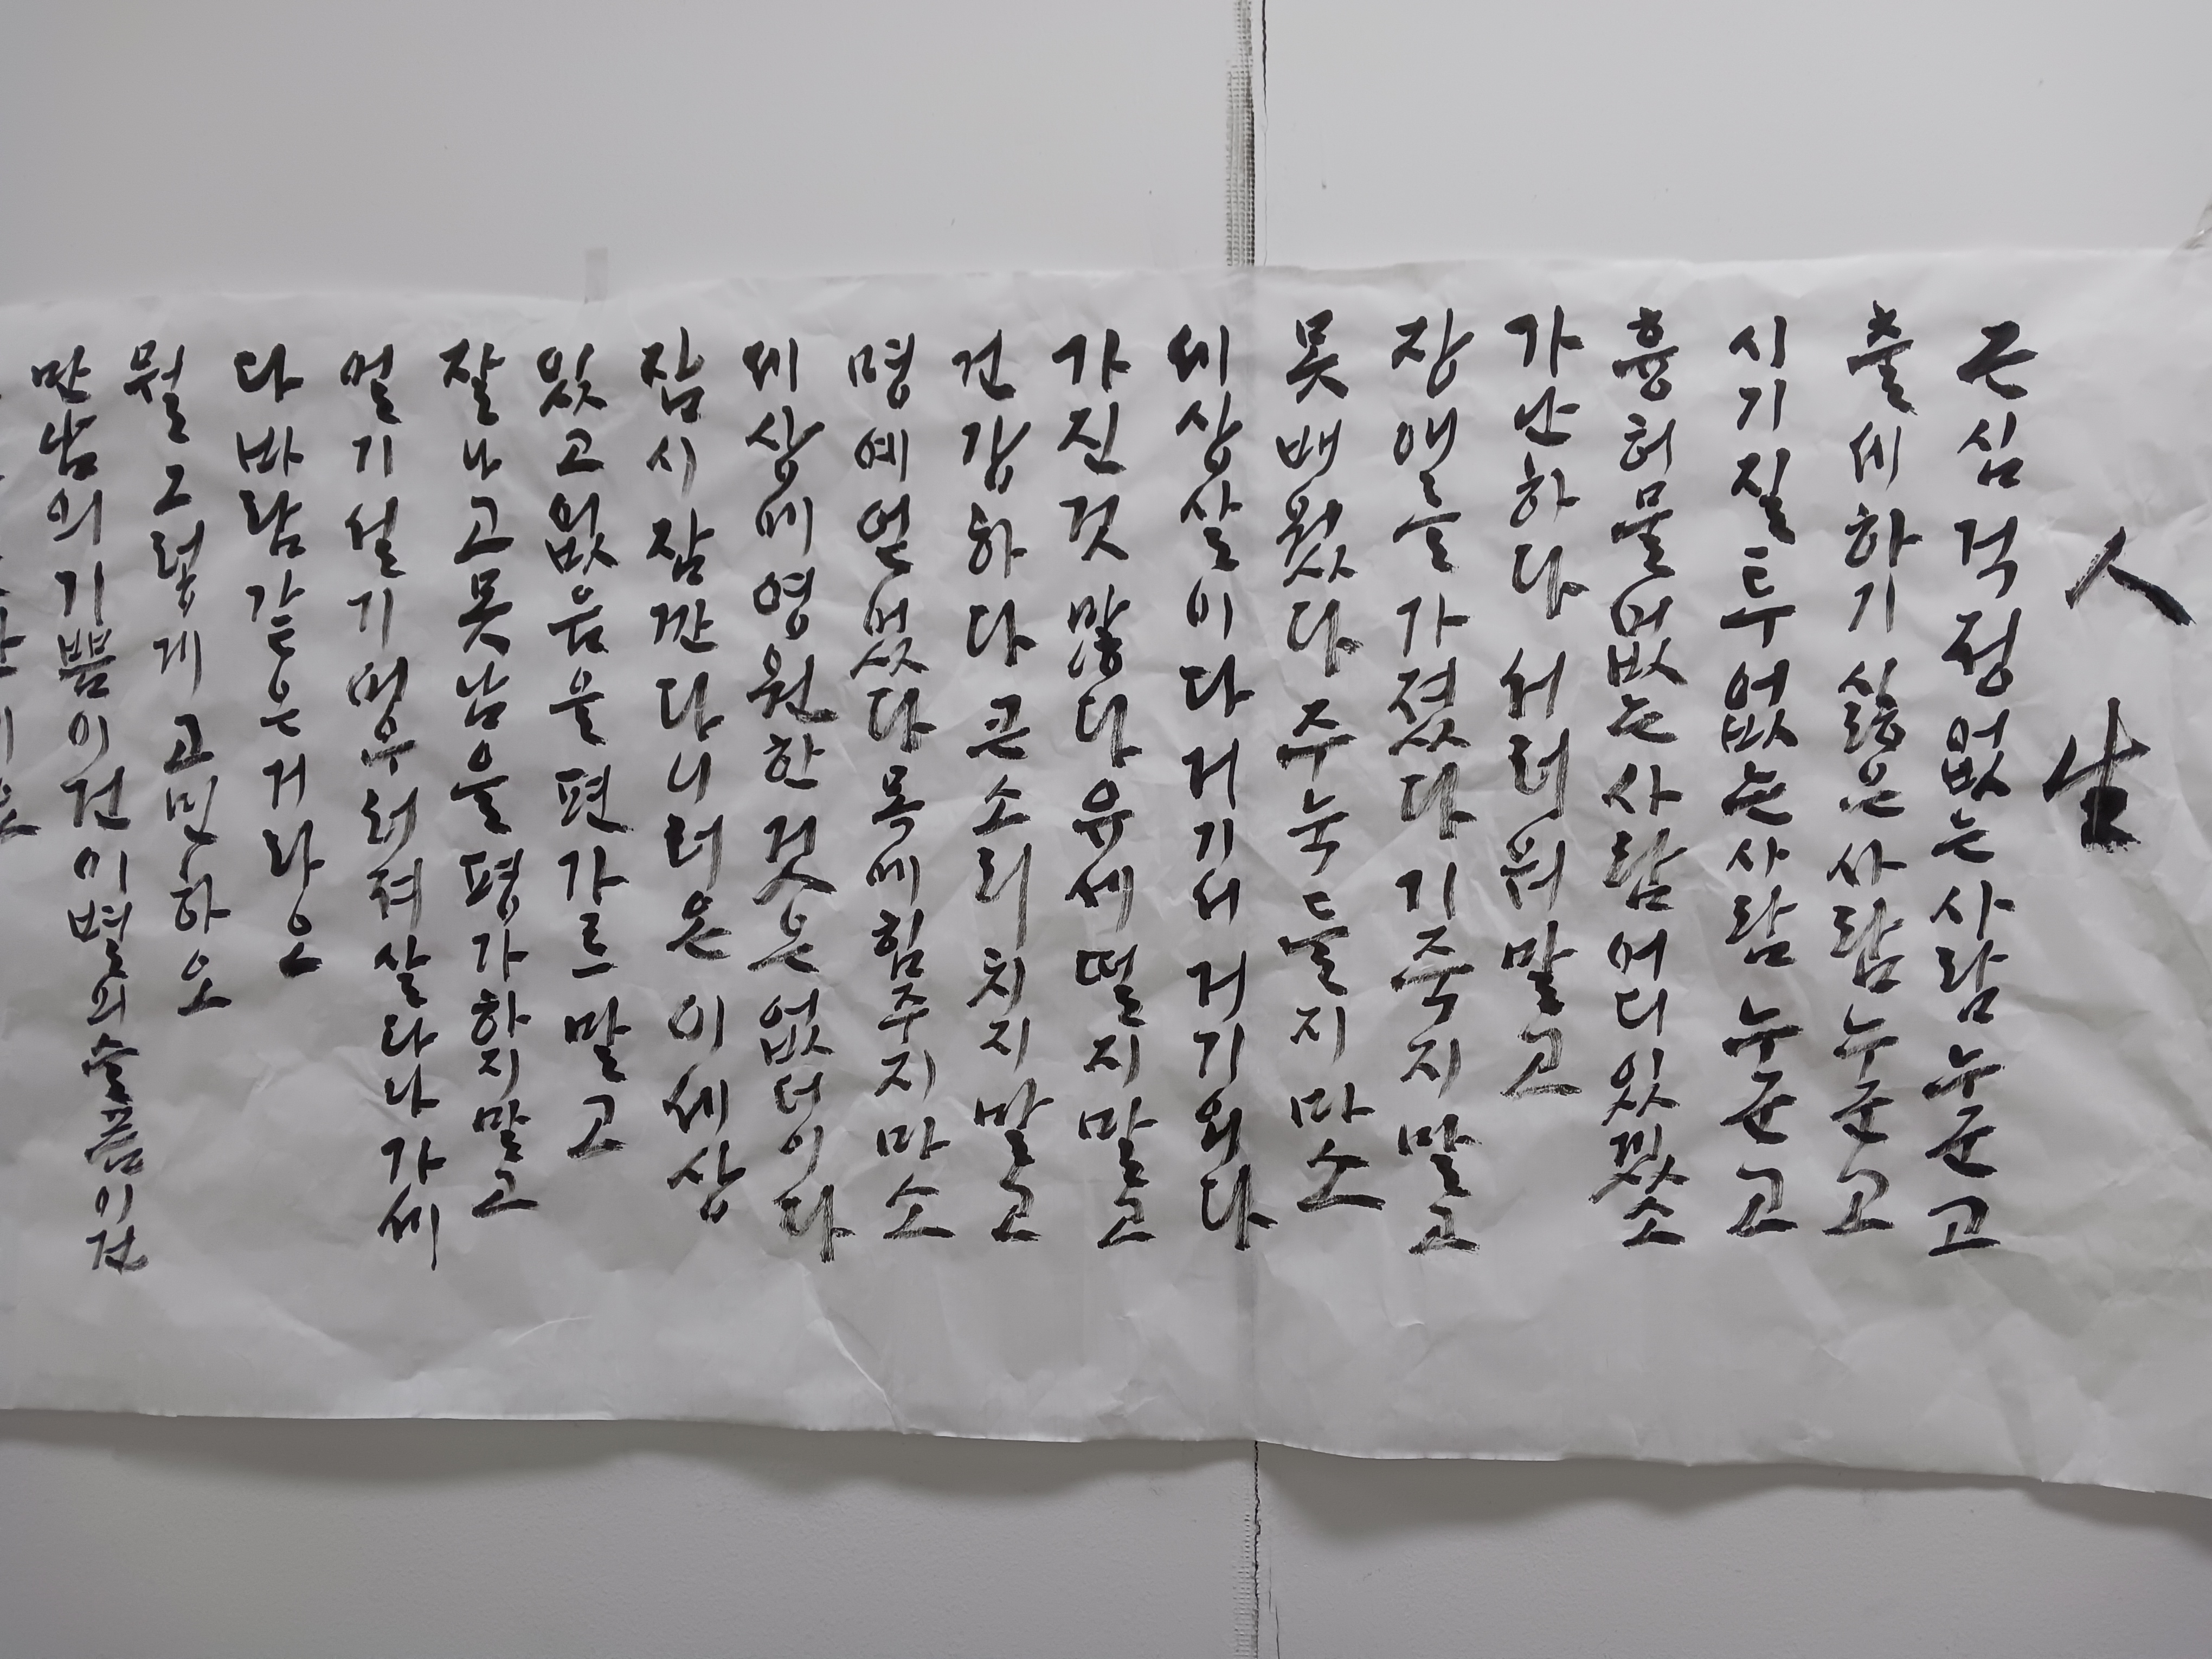 人生
근심 걱정 없는 사람 누군고
출세하기 싫은 사람 누군고
시기 질투 없는 사람 누군고
흉허물 없는 사람 어디 있겠소
가난하다 서러워 말고
장애를 가졌다 기죽지 말고
못 배웠다 주눅들지 마소
세상살이 다 거기서 거기외다
가진 것 많다 유세 떨지 말고
건강하다 큰소리치지 말고
명예 얻었다 목에 힘주지 마소
세상에 영원한 것은 없더이다
잠시 잠깐 다니러 온 이 세상
있고 없음을 편가르 말고
잘나고 못남을 평가하지 말고
얼기설기 어우러져 살다나 가세
다 바람같은 거라오
뭘 그렇게 고민하오
만남의 기쁨이건 이별의 슬픔이건